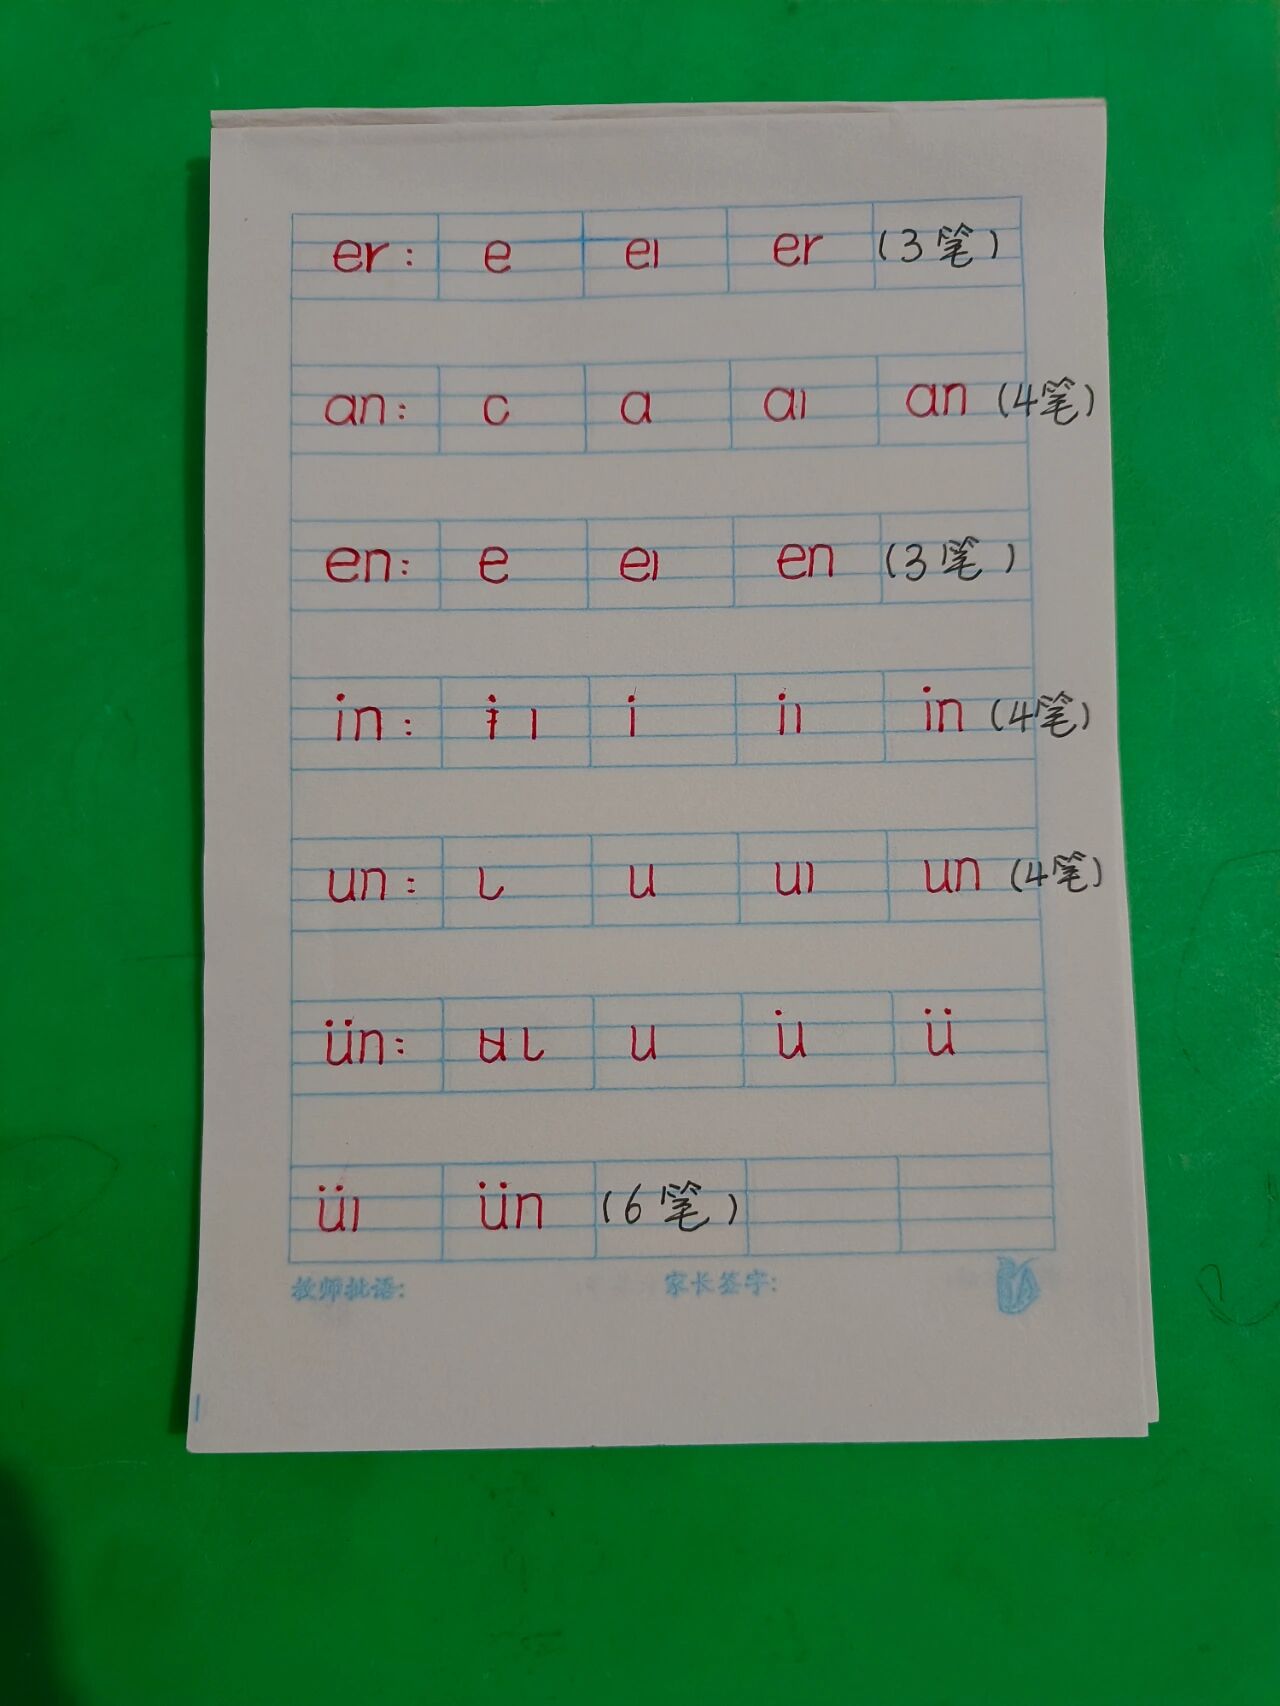 er: e eı er (3笔)
an: c a aı an (4笔)
en: e eı en (3笔)
in: ı i iı in (4笔)
un: ㄟ u uı un (4笔)
ün: u u̇ ü
üı ün (6笔)
教师批语: 家长签字: